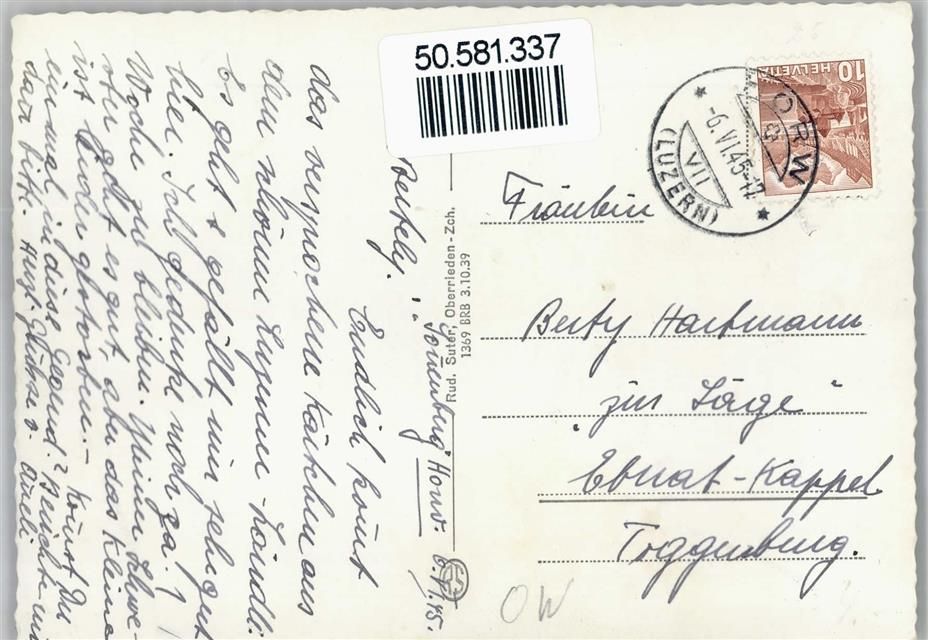 50.581.337
HELVETIA
10
HORW
(LUZERN)
-6.VI.45-17
VII
Rud. Suter, Oberrieden - Zch.
1369 BRB 3.10.39
Fräulein
Berty Hartmann
"zur Säge"
Ebnat-Kappel
Toggenburg.
OW
"Sonnenberg" Horw. 6.VI.45.
Bertely.
Endlich kommt
das versprochene Kärtchen aus
dem schönen Luzerner-Ländli.
Es geht & gefällt mir sehr gut
hier. Ich gedenke noch ca. 1
Woche zu bleiben. Meiner Schwe-
ster geht es gut, aber das Kleine
ist leider gestorben. - Kommst Du
einmal in diese Gegend? Bericht mir
dann bitte. Herzl. Grüsse